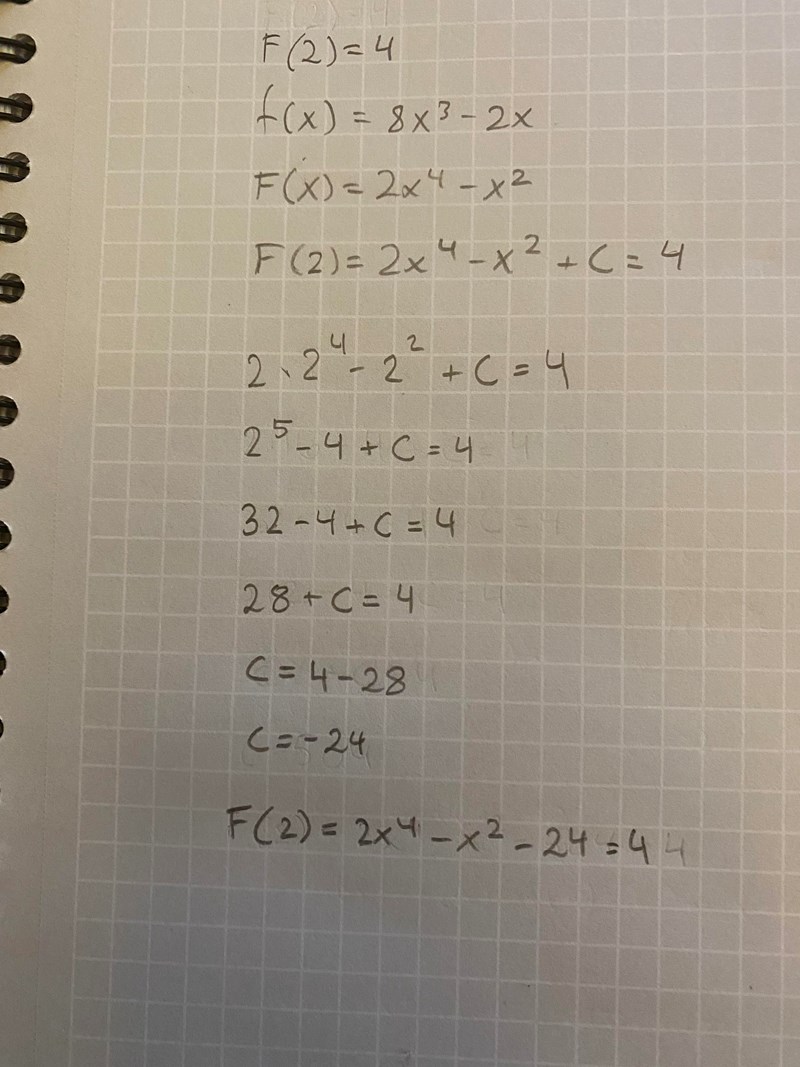 F(2) = 4
f(x) = 8x³ - 2x
F(x) = 2x⁴ - x²
F(2) = 2x⁴ - x² + C = 4
2 · 2⁴ - 2² + C = 4
2⁵ - 4 + C = 4
32 - 4 + C = 4
28 + C = 4
C = 4 - 28
C = -24
F(2) = 2x⁴ - x² - 24 = 4 4